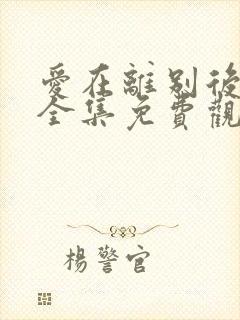 愛在離别後
全集免費觀
楊警官